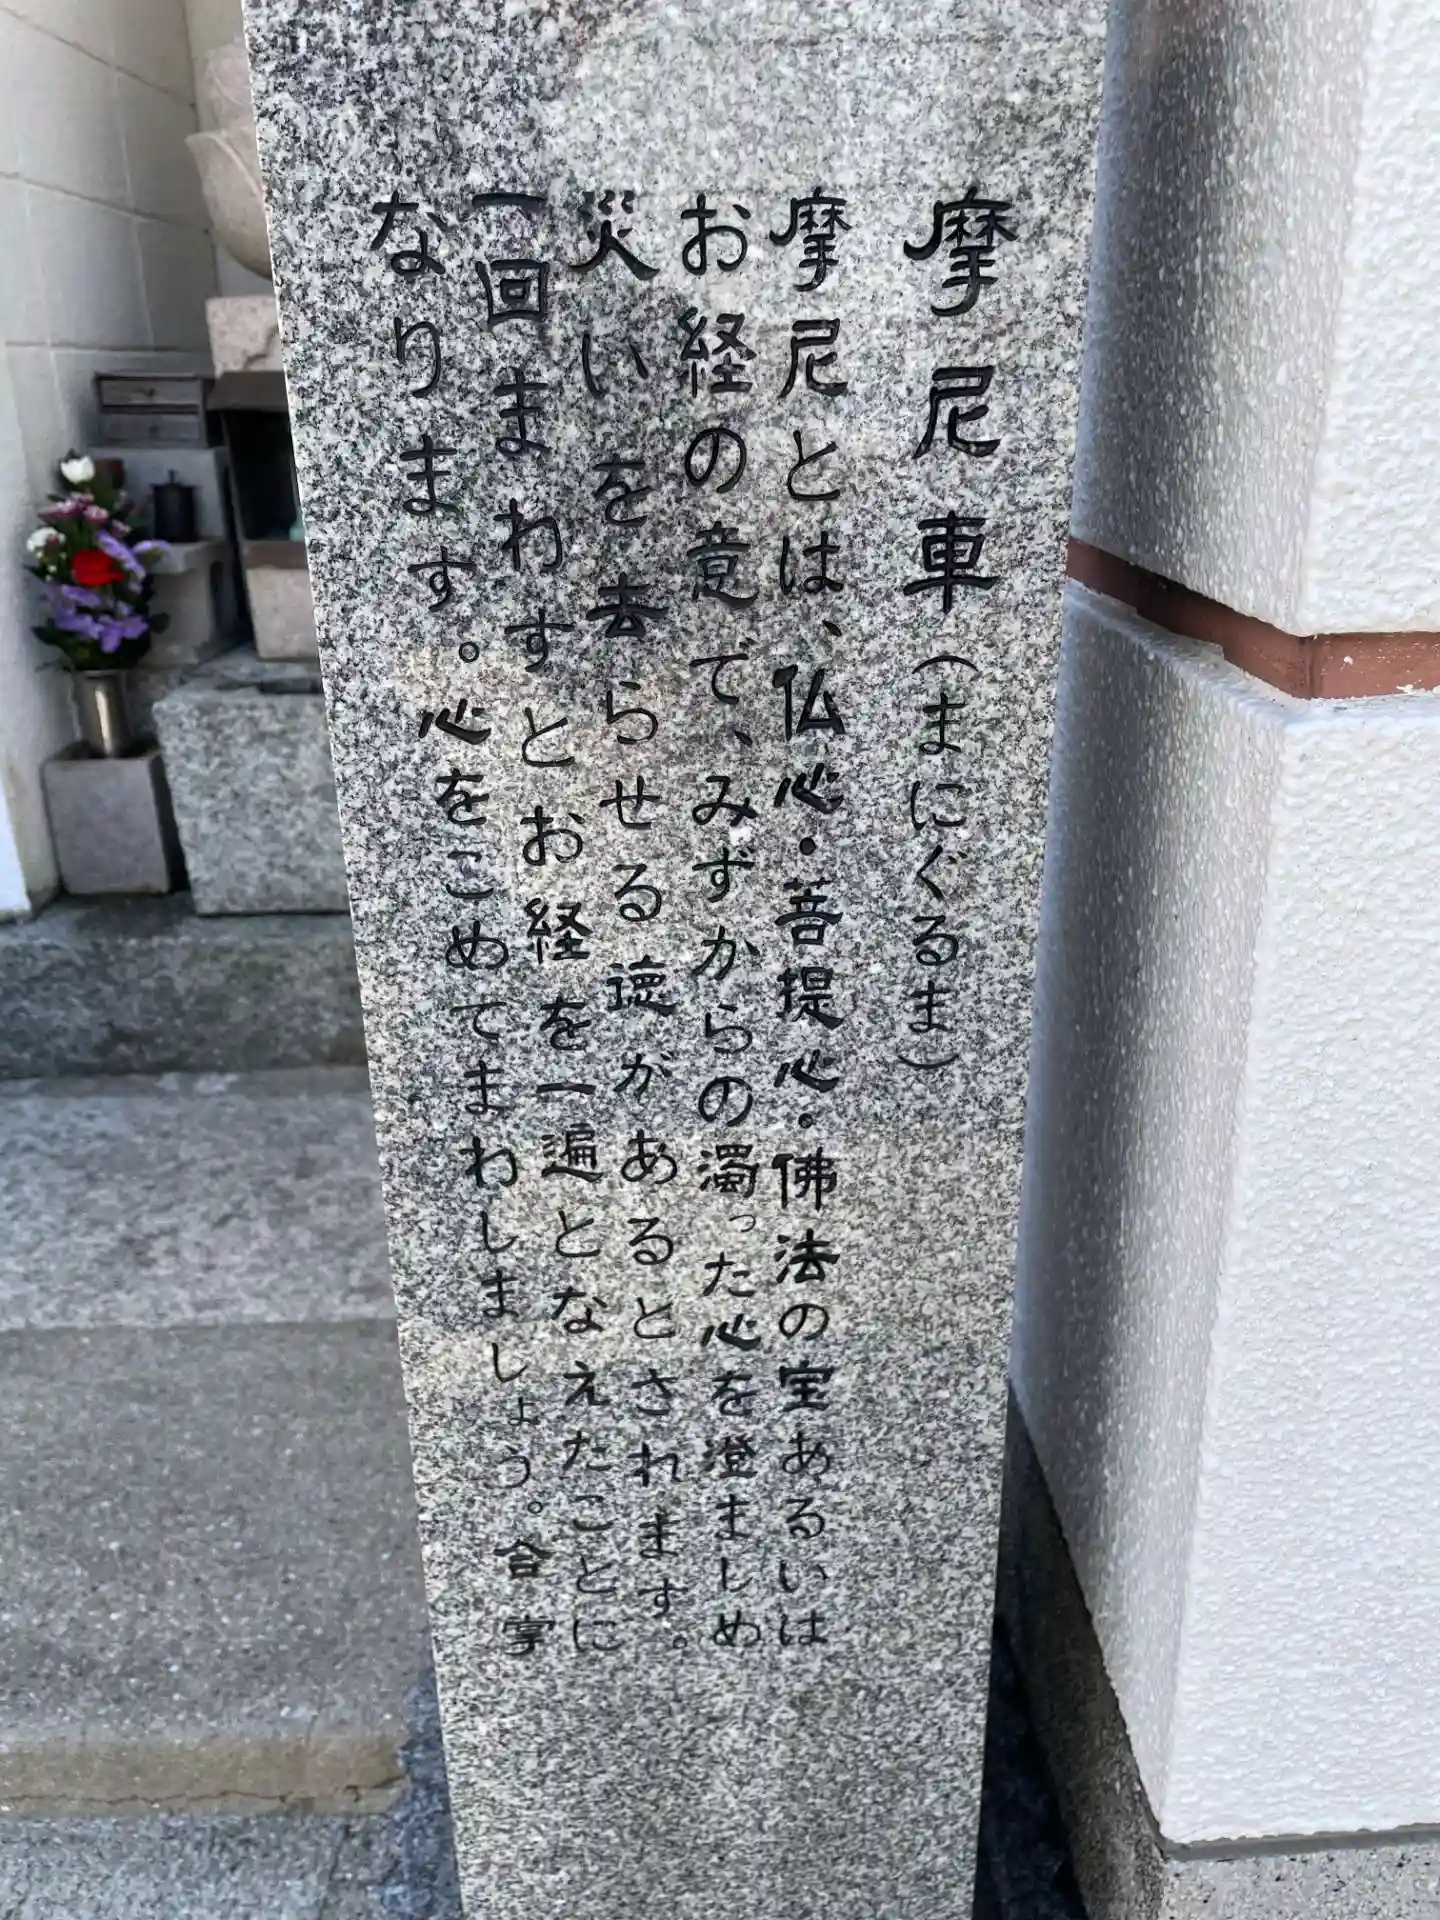 摩尼車(まにぐるま)
摩尼とは、仏心・菩提心・佛法の宝あるいは
お経の意で、みずからの濁った心を澄ましめ
災いを去らせる徳があるとされます。
一回まわすとお経を一遍となえたことに
なります。心をこめてまわしましょう。合掌